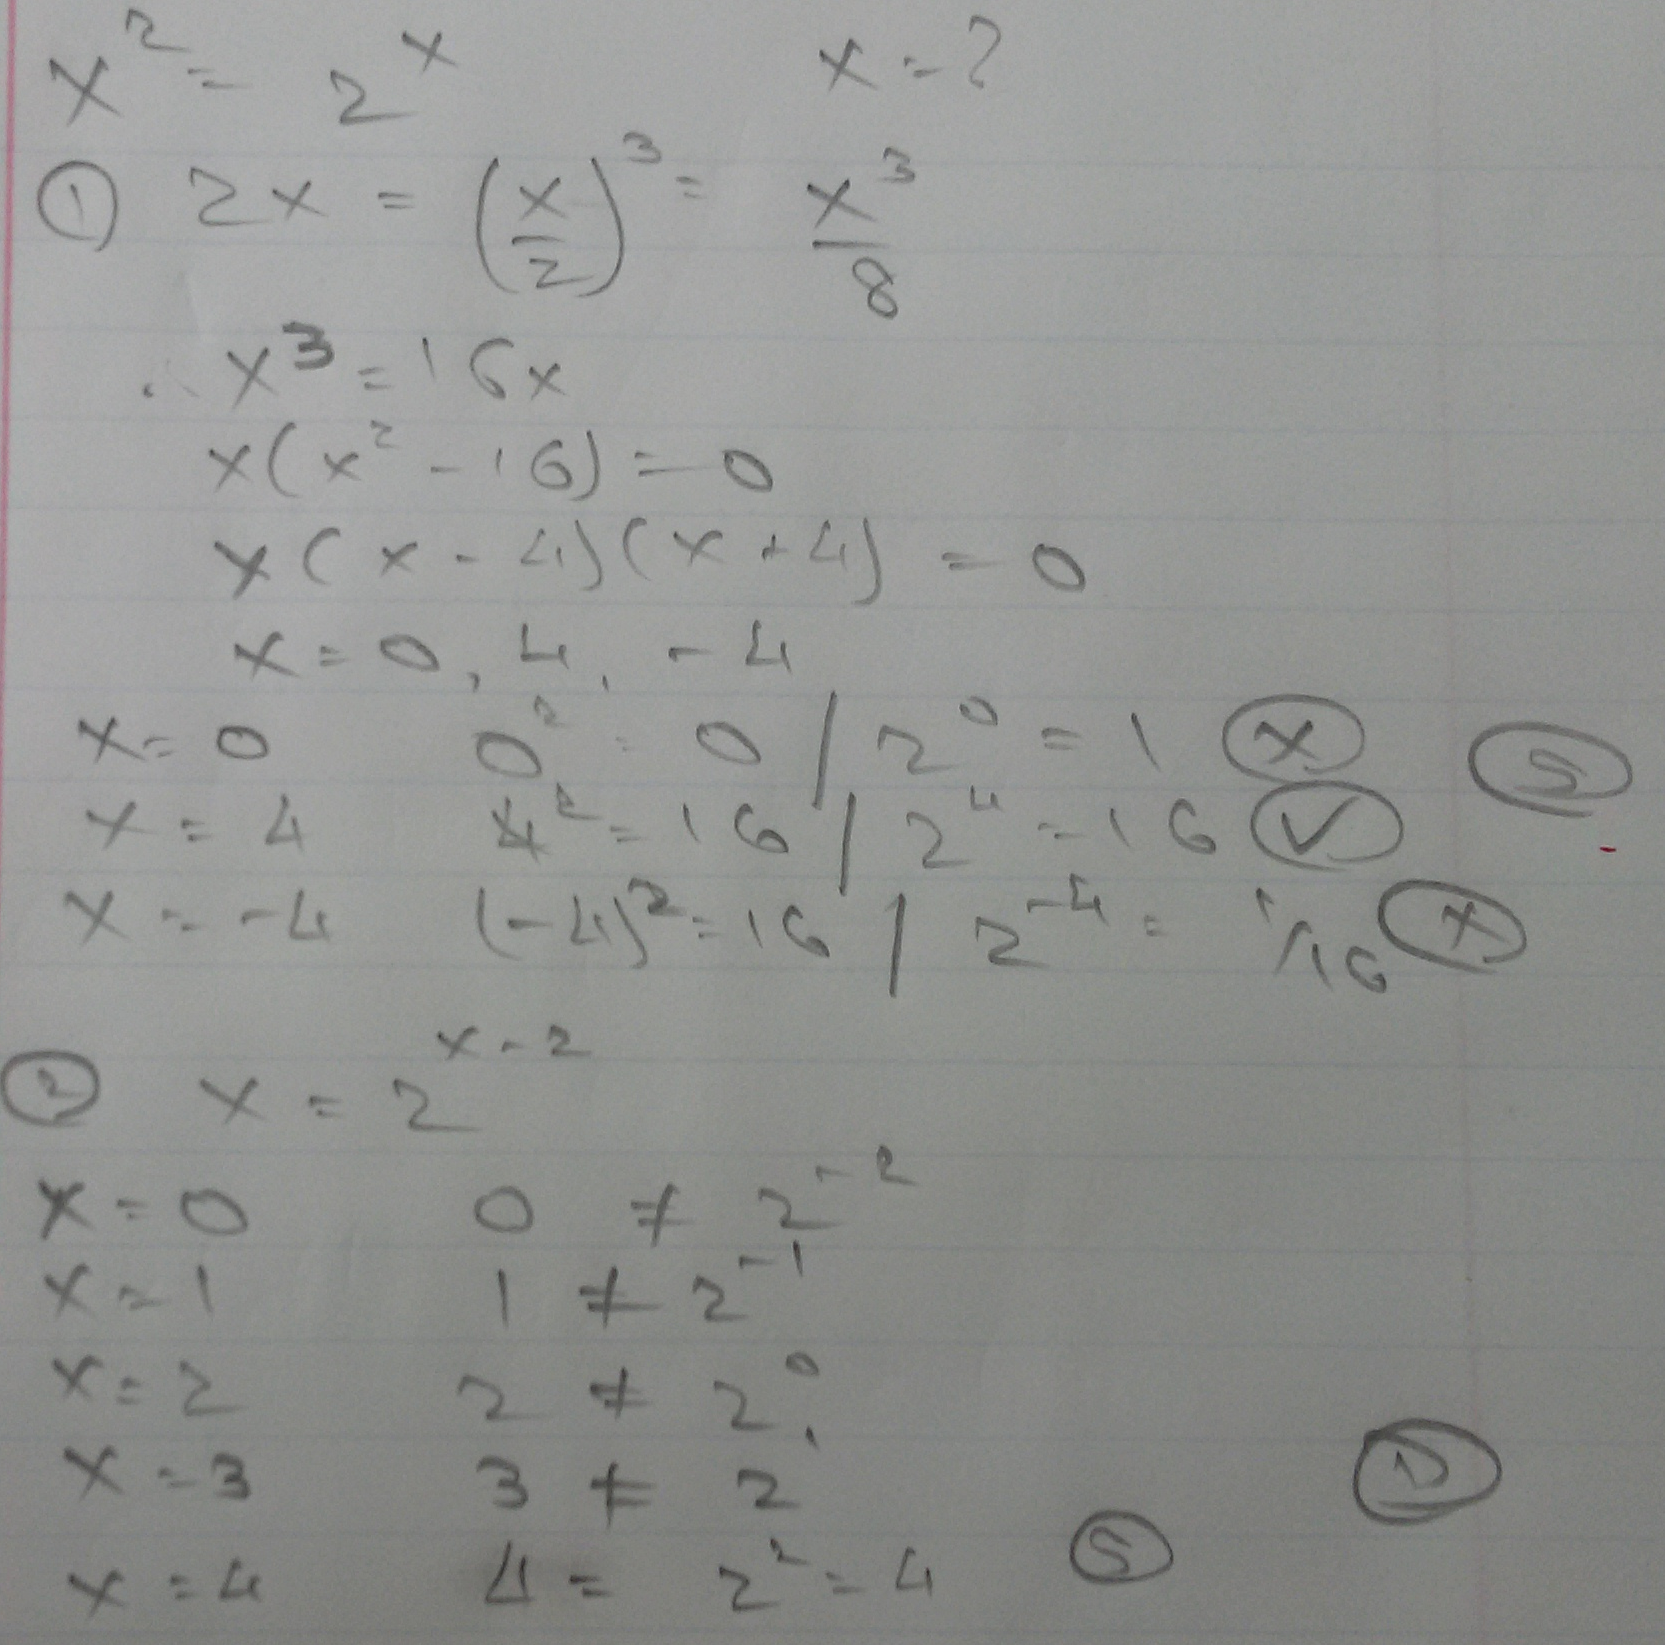 x² = 2^x x = ?
① 2x = (x/2)³ = x³/8
∴ x³ = 16x
x(x² - 16) = 0
x(x - 4)(x + 4) = 0
x = 0, 4, -4
x = 0 0² = 0 / 2⁰ = 1 ⓧ Ⓢ
x = 4 4² = 16 / 2⁴ = 16 ✓
x = -4 (-4)² = 16 / 2⁻⁴ = 1/16 ⓧ
② x = 2^(x-2)
x = 0 0 ≠ 2⁻²
x = 1 1 ≠ 2⁻¹
x = 2 2 ≠ 2⁰
x = 3 3 ≠ 2¹ Ⓓ
x = 4 4 = 2² = 4 Ⓢ